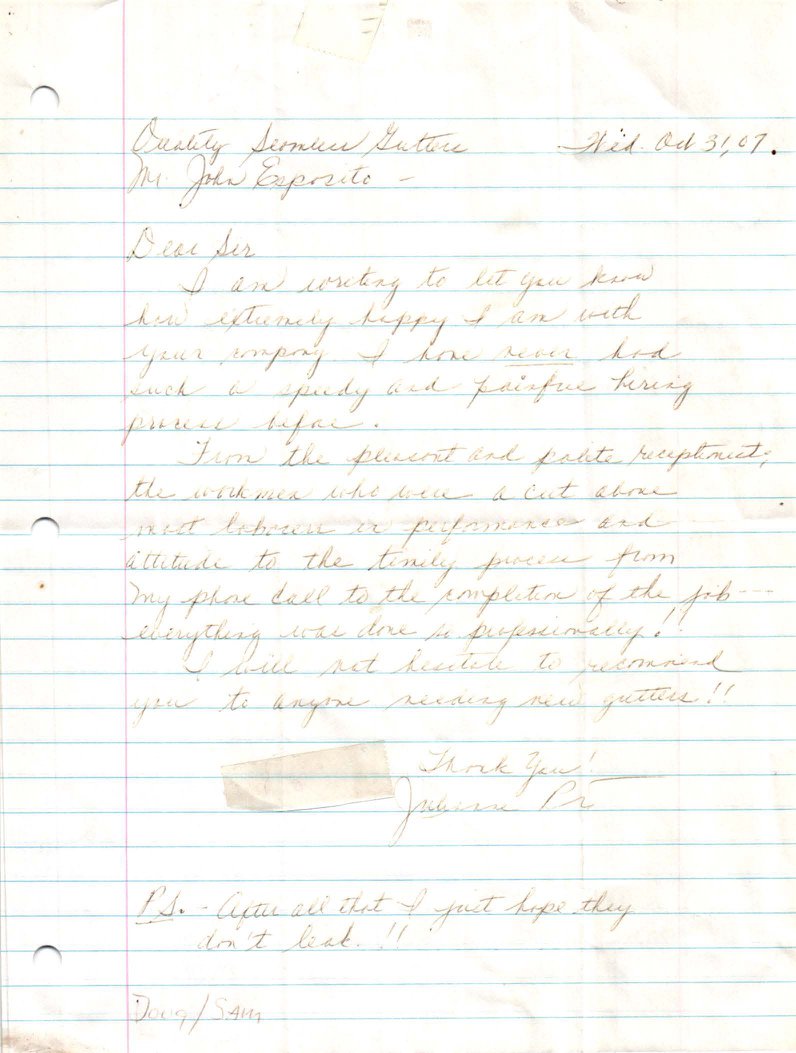 Quality Seamless Gutters - Wed. Oct 31, 07.
Mr. John Esposito -
Dear Sir
I am writing to let you know
how extremely happy I am with
your company I have never had
such a speedy and painfree hiring
process before.
From the pleasant and polite receptionist,
the workmen who were a cut above
most laborers in performance and
attitude to the timely process from
my phone call to the completion of the job ---
everything was done so professionally!!
I will not hesitate to recommend
you to anyone needing new gutters!!
Thank You!
P.S. - After all that I just hope they
don't leak.!!
Doug/SAM